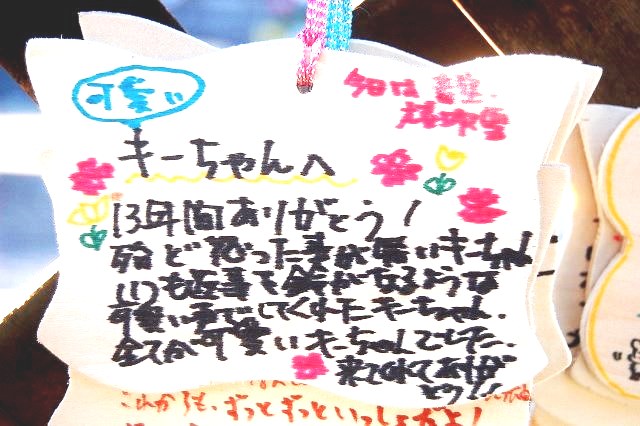 可愛い
今日は
キーちゃんへ
13年間ありがとう!
殆ど怒った事が無いキーちゃん
いつも返事を鈴がなるような
可愛い声でしてくれたキーちゃん.
全てが可愛いキーちゃんでした.
来てくれてありが
とう!!
これからも、ずっとずっといっしょだよ!